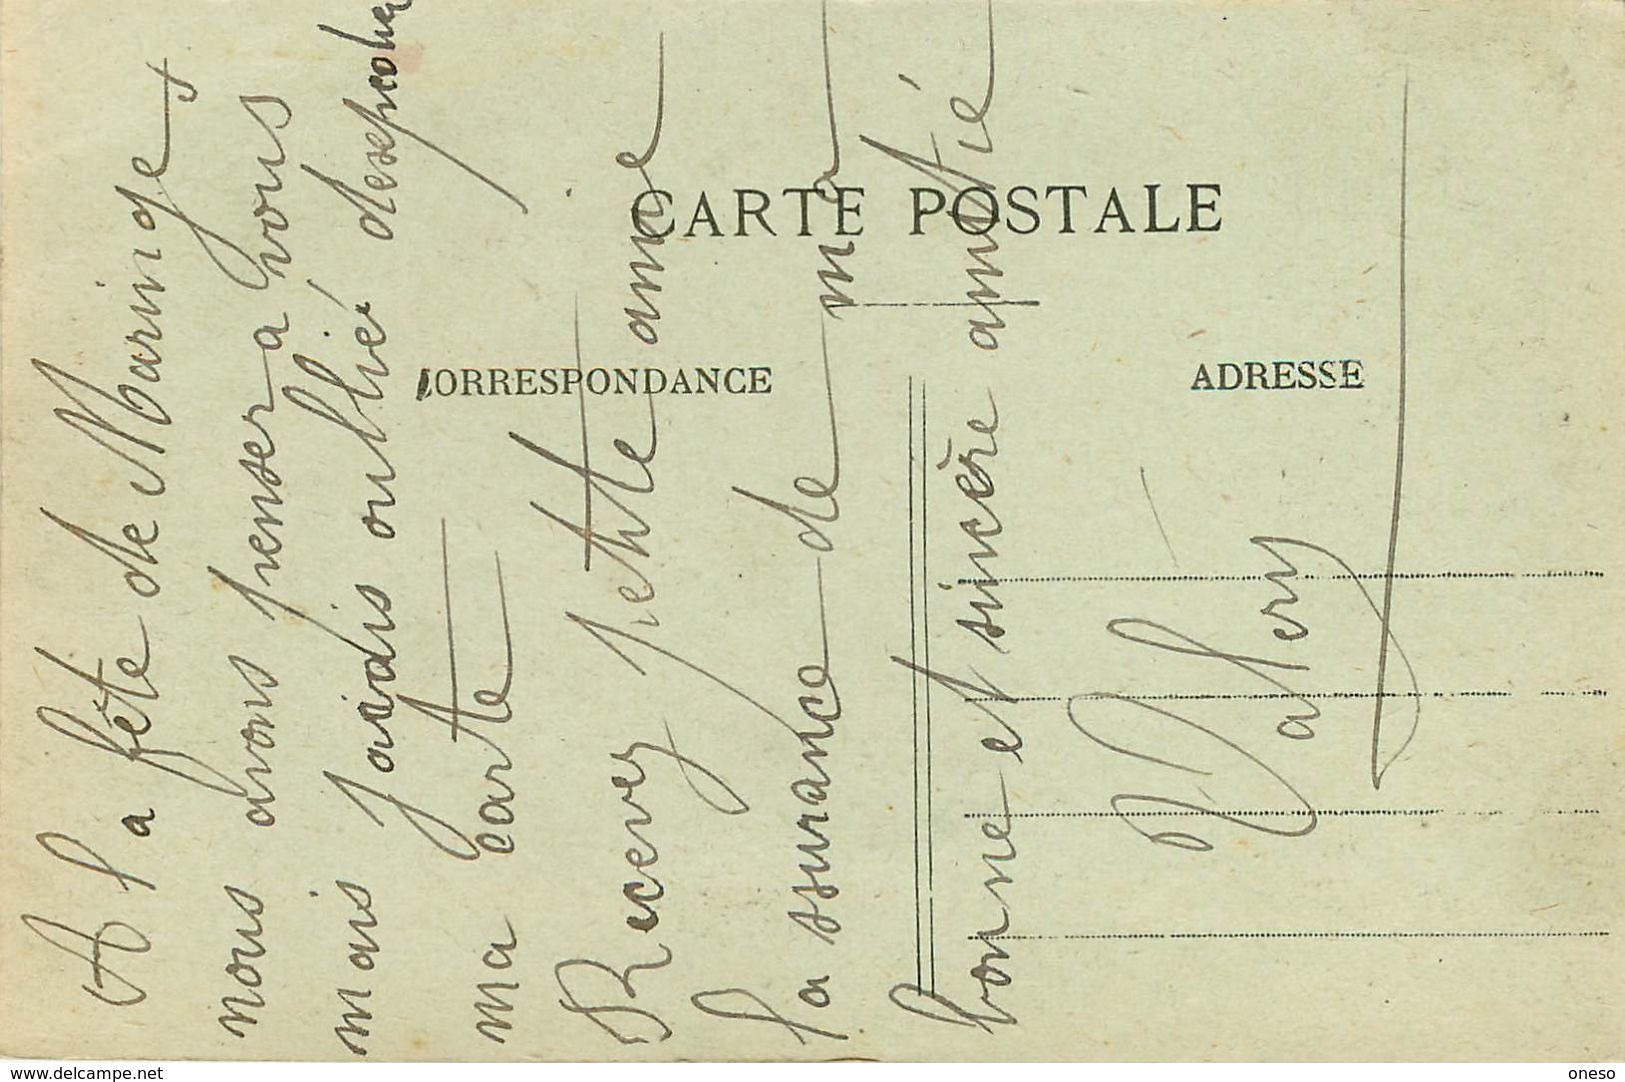 CARTE POSTALE
CORRESPONDANCE
ADRESSE
A la fête de Maringes
nous avons penser a vous
mais j'avais oublié
ma carte
Recevez petite amie
l'assurance de ma
bonne et sincère amitié
www.delcampe.net
oneso